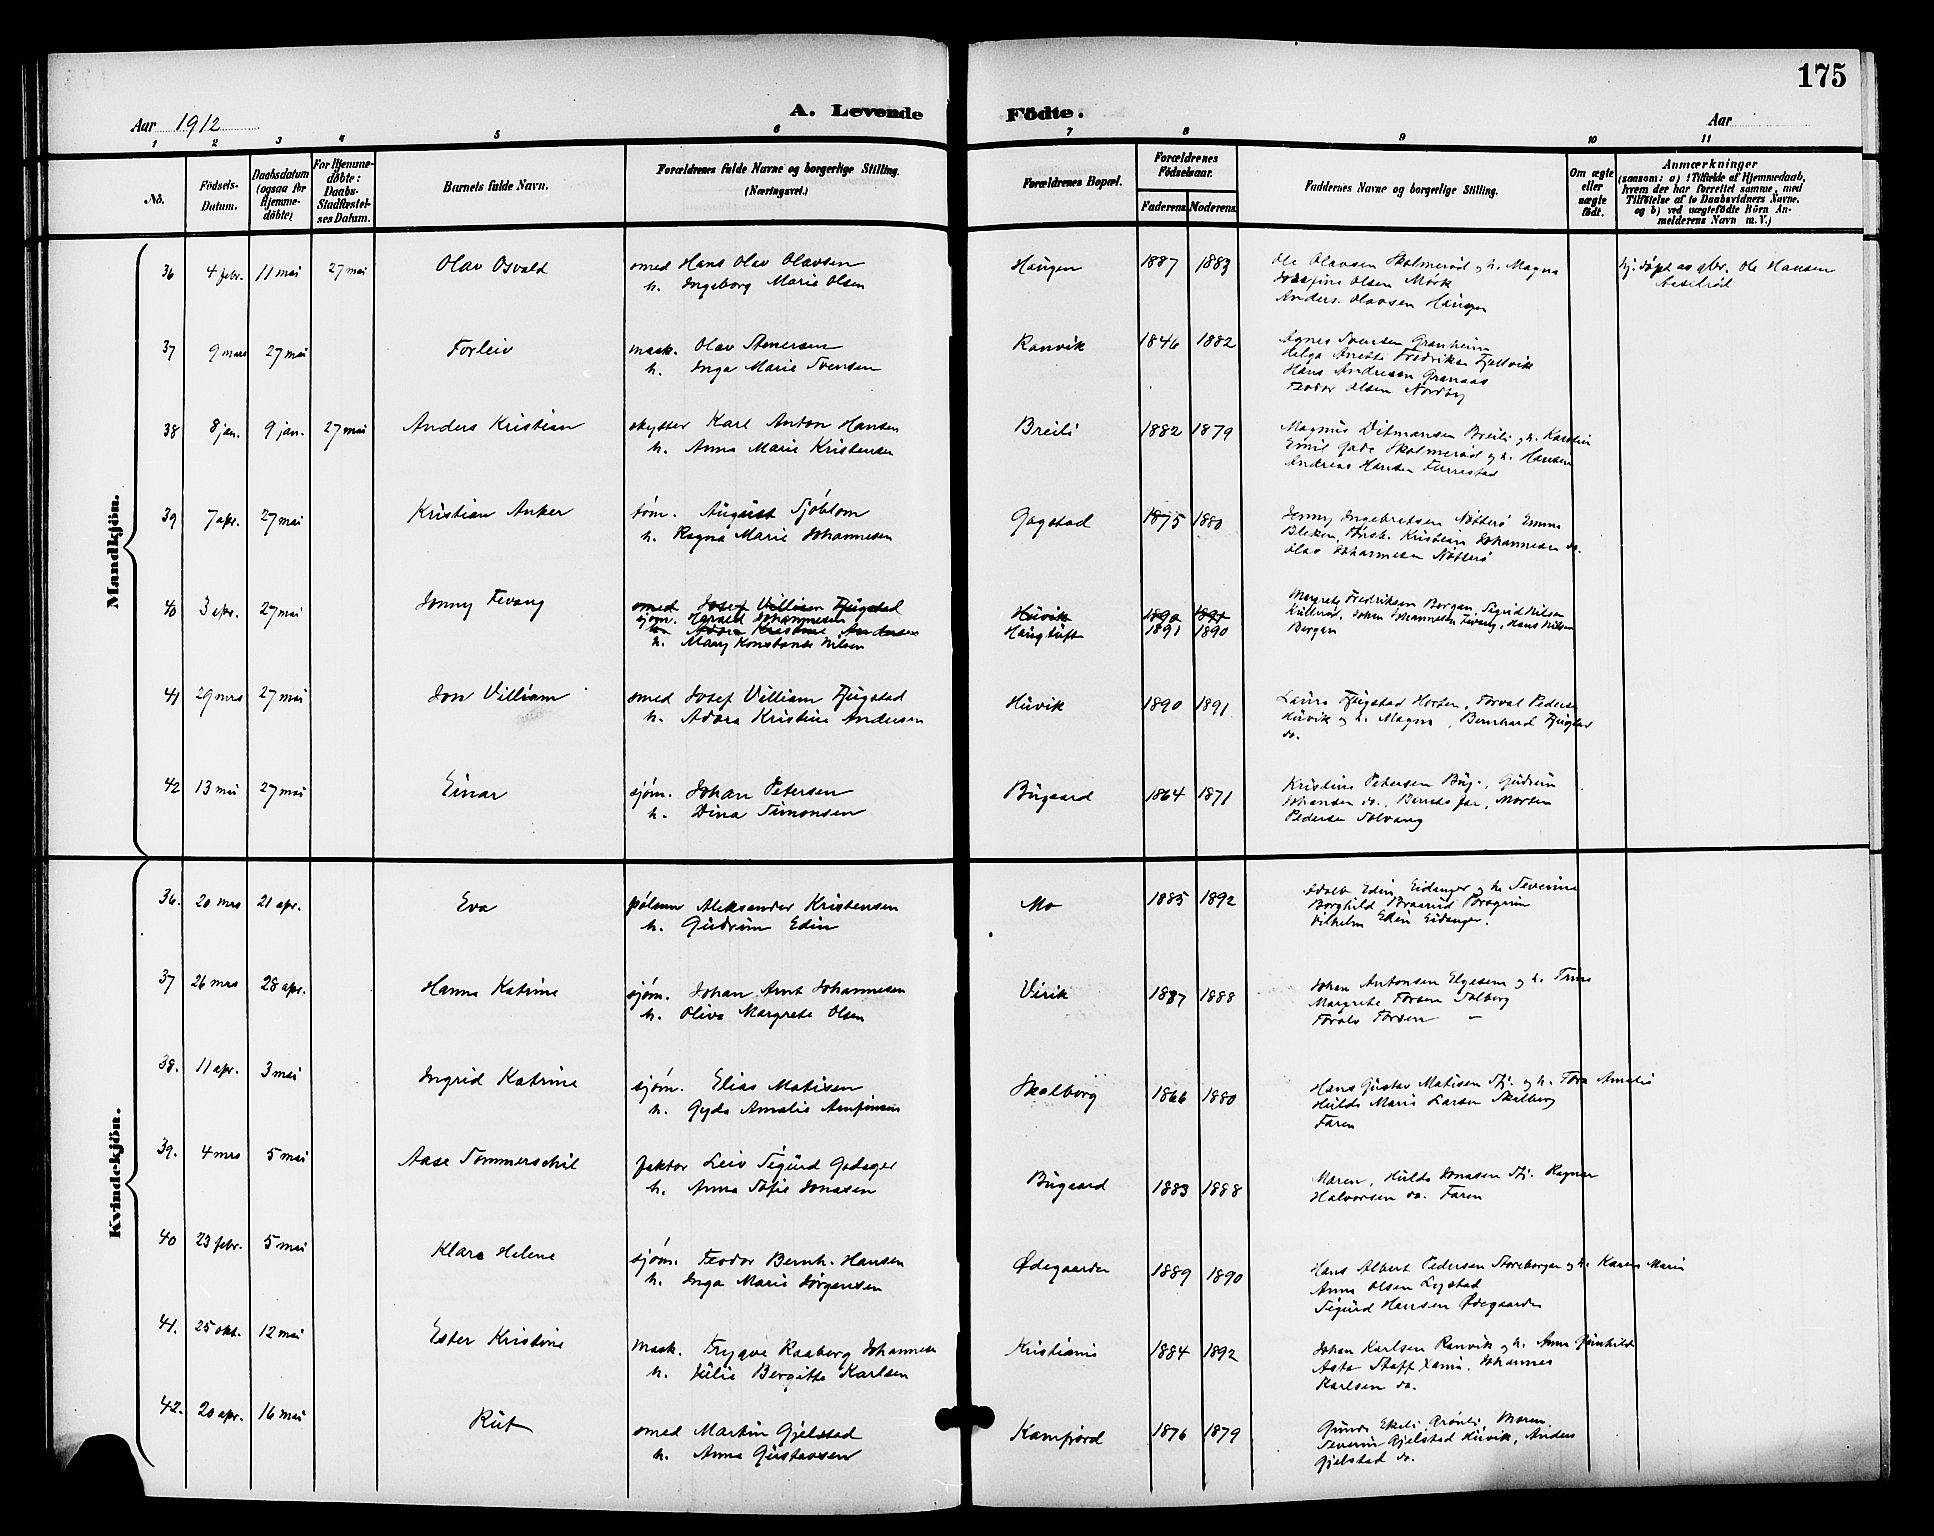 175
Aar 1912
A. Levende Födte.
Aar
1 2 3 4 5 6 7 8 9 10 11
No.
Födsels-Datum.
Daabsdatum (ogsaa for Hjemme-döbte)
For Hjemme-döbte: Daabs-Stadfæstel-ses Datum.
Barnets fulde Navn.
Forældrenes fulde Navne og borgerlige Stilling. (Næringsvei.)
Forældrenes Bopæl.
Forældrenes Födselsaar.
Faderens Moderens
Faddernes Navne og borgerlige Stilling.
Om ægte eller uægte födt.
Anmærkninger
(saasom: a) i Tilfælde af Hjemmedaab, hvem der har forrettet samme, med Tilföielse af to Daabsvidners Navne, og b) ved uægtefödte Börn An-melderens Navn m. V.)
Mandkjön.
36 4 febr. 11 mai 27 mai Olav Osvald smed Hans Olav Olavsen Haugen 1887 1883 Ole Olavsen Skolmeröd g h. Magna hj. døpt av gbr. Ole Hansen
h. Ingeborg Marie Olsen Josefine Olsen Mørk
Anders Olavsen Haugen
37 9 mars 27 mai Torleiv mask. Olav Amersen Ranvik 1846 1882 Agnes Svensen Granheim
h. Inga Marie Svensen Helga Anette Fredriksen Fjellvik
Hans Andresen Granaas
Teodor Olsen Nordby
38 8 jan. 9 jan. 27 mai Anders Kristian skytter Karl Anton Hansen Breili 1882 1879 Magnus Ditmansen Breili g h. Karoline
h. Anna Marie Kristensen Emil Gade Skolmerød g h. Hansen
Andreas Hansen Furrestad
39 7 apr. 27 mai Kristian Anker søm. August Sjöblom Gogstad 1875 1880 Jenny Ingebretsen Nøtterø Emma
h. Ragna Marie Johannesen Bleken, Kristian Johannesen do.
Olav Johannesen Nøtterø
40 3 apr. 27 mai Jonny Fevang smed Josef Villiam Fjugstad Huvik 1890 1891 Margrete Fredriksen Bergan, Sigrid Nilsen
sjøm. Harald Johannesen Haugtuft 1891 1890 Johan Johannesen Fevang, Hans Nilsen
h. Adora Kristine Andersen Bergan
h. Mary Konstanse Nilsen
41 29 mrs 27 mai Jon Villiam smed Josef Villiam Fjugstad Huvik 1890 1891 Laura Fjugstad Horten, Torval Pedersen
h. Adora Kristine Andersen Huvik g h. Magna, Bernhard Fjugstad
do.
42 13 mai 27 mai Einar sjøm. Johan Petersen Bugaard 1864 1871 Kristine Petersen Bug., Gudrun
h. Dina Simonsen Johansen do., Barnets far, Morten
Pedersen Solvang
Kvindekjön.
36. 20 mrs 21 apr. Eva pølsem Aleksander Kristensen Mo 1885 1892 Edin Eidanger g h. Severine
h. Gudrun Edin Borghild Braarud Bragerim
Vilhelm Edin Eidanger.
37 26 mrs 28 apr. Hanna Katrine sjøm. Johan Arnt Johannesen Virik 1887 1888 Johan Antonsen g h. Trine
h. Oliva Margrete Olsen Margrete Torsen Solberg
Torsen "
38. 11 apr. 3 mai Ingrid Katrine sjøm. Elias Matisen Skolborg 1866 1880 Hans Gustav Matisen Stj. g h. Tora Amalie
h. Gyda Amalie Arnfinsen Hulda Marie Larsen Skolberg
Faren
39. 4 mrs 5 mai Aase Sommerschil faktor Leiv Sigurd Godager Bugaard 1883 1888 Moren, Hulda Jonasen Stj. Ragnar
h. Anna Sofie Jonasen Halvorsen do. Faren
40 23 febr. 5 mai Klara Helene sjøm. Teodor Bernh. Hansen Ødegaarden 1889 1890 Hans Albert Pedersen Storebergan g h. Karen Marie
h. Inga Marie Jörgensen Anna Olsen Lystad
Sigurd Hansen Ødegaarden
41. 25 okt. 12 mai Ester Kristine mask. Trygve Raaberg Johannesen Kristiania 1884 1892 Johan Karlsen Ranvik g h. Anna Gunhild
h. Julie Bergitte Karlsen Asta Staff Johannes
Karlsen do.
42. 20 apr. 16 mai Rut smed Martin Gjelstad Kamfjord 1876 1879 Gunda Ekeli, Moren
h. Anna Gustavsen Severin Gjelstad Huvik, Anders
Gjelstad do.